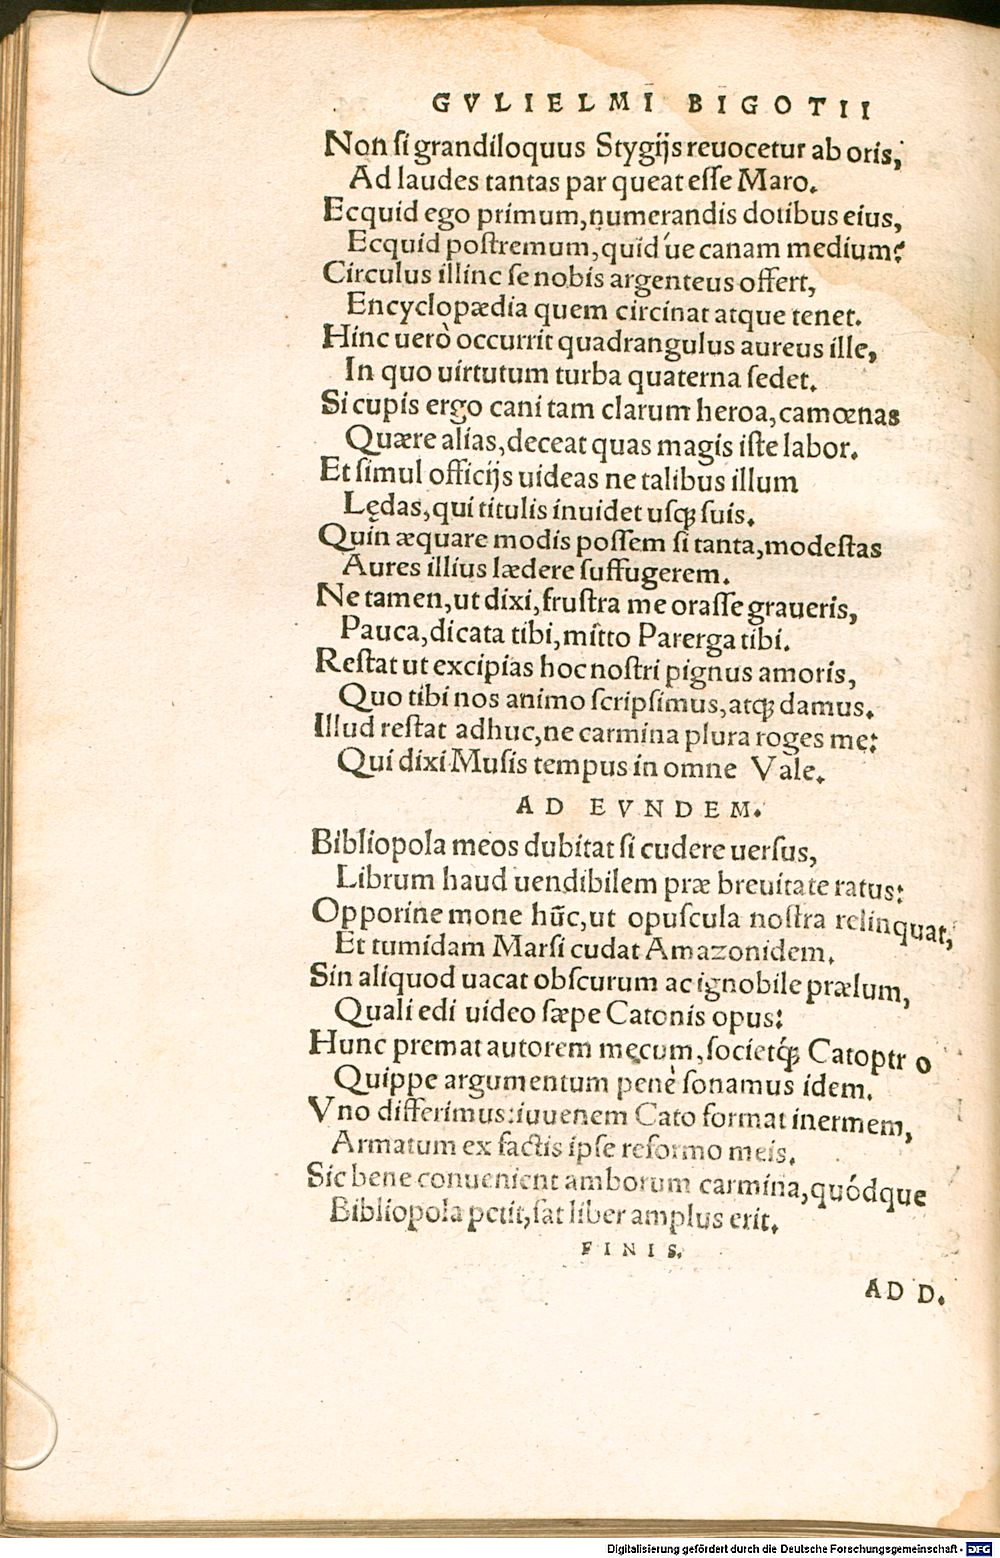 GVLIELMI BIGOTII
Non ſi grandiloquus Stygijs reuocetur ab oris,
Ad laudes tantas par queat eſſe Maro.
Ecquid ego primum, numerandis dotibus eius,
Ecquid poſtremum, quid úe canam medium?
Circulus illinc ſe nobis argenteus offert,
Encyclopædia quem circinat atque tenet.
Hinc uerò occurrit quadrangulus aureus ille,
In quo uirtutum turba quaterna ſedet.
Si cupis ergo cani tam clarum heroa, camœnas
Quære alias, deceat quas magis iſte labor.
Et ſimul officijs uideas ne talibus illum
Lędas, qui titulis inuidet uſq; ſuis.
Quin æquare modis poſſem ſi tanta, modeſtas
Aures illius lædere ſuffugerem.
Ne tamen, ut dixi, fruſtra me oraſſe graueris,
Pauca, dicata tibi, mitto Parerga tibi.
Reſtat ut excipias hoc noſtri pignus amoris,
Quo tibi nos animo ſcripſimus, atq; damus.
Illud reſtat adhuc, ne carmina plura roges me:
Qui dixi Muſis tempus in omne Vale.
AD EVNDEM.
Bibliopola meos dubitat ſi cudere uerſus,
Librum haud uendibilem præ breuitate ratus:
Opporine mone hūc, ut opuſcula noſtra relinquat,
Et tumidam Marſi cudat Amazonidem.
Sin aliquod uacat obſcurum ac ignobile prælum,
Quali edi uideo ſæpe Catonis opus:
Hunc premat autorem męcum, ſocietq́; Catoptro
Quippe argumentum penè ſonamus idem.
Vno differimus: iuuenem Cato format inermem,
Armatum ex factis ipſe reformo meis.
Sic bene conuenient amborum carmina, quódque
Bibliopola petit, ſat liber amplus erit.
FINIS.
AD D.
Digitalisierung gefördert durch die Deutsche Forschungsgemeinschaft - DFG